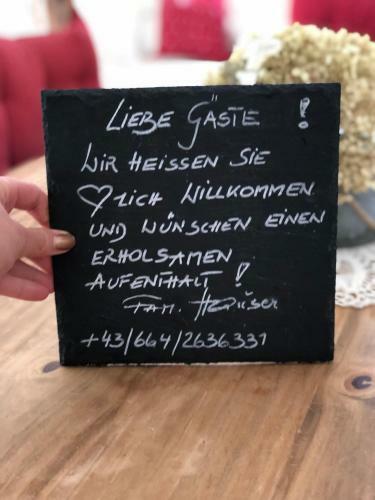 LIEBE GÄSTE !
WIR HEISSEN SIE
♡LICH WILLKOMMEN
UND WÜNSCHEN EINEN
ERHOLSAMEN
AUFENTHALT !
FAM.
+43/664/2636331